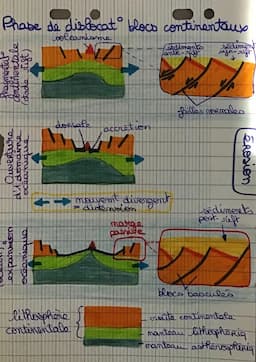 Phase de dislocat° blocs continentaux
volcanisme
sédiments
anté-rift
sédim
syn-rift
Fragmentat°
continentale
(stade rift)
failles normales
dorsale
accrétion
Ouverture
d'1 domaine
océanique
Érosion
= mouvemt divergent
= distension
marge
passive
sédiments
post-rift
expansion
océanique
blocs basculés
lithosphère
continentale
croûte continentale
manteau lithosphériq
manteau asthénosphériq